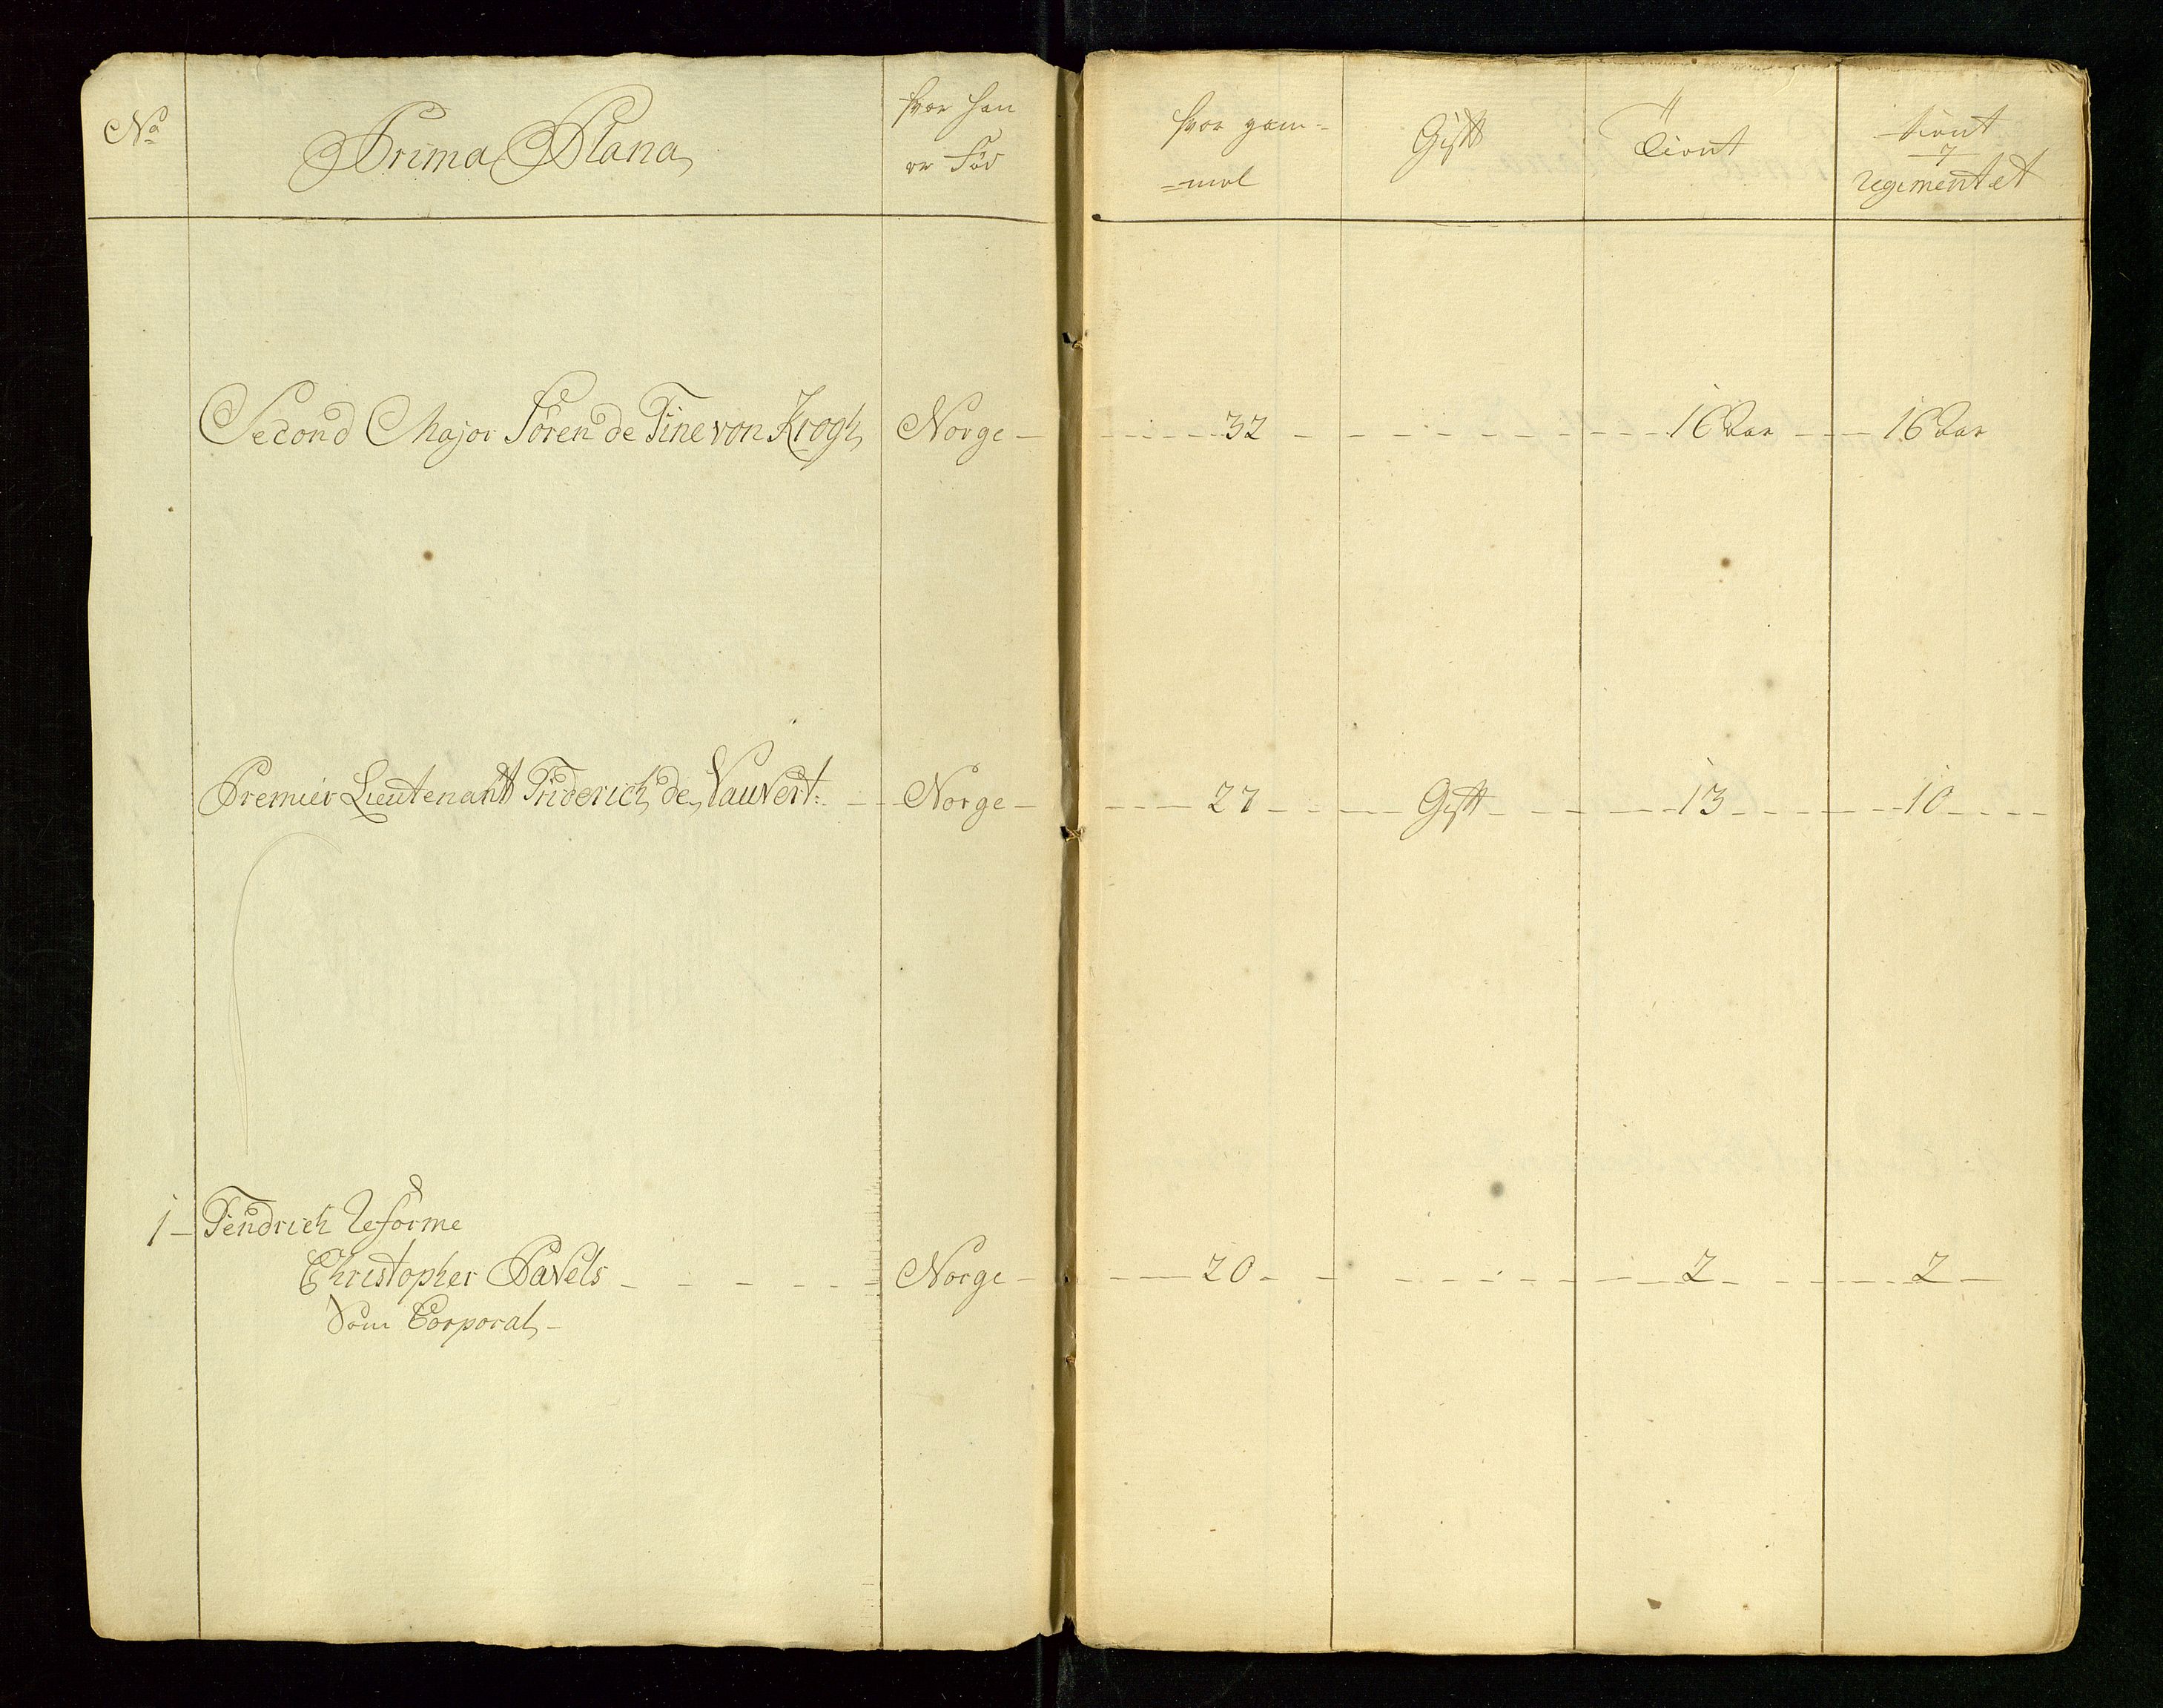 No
Prima Plana
hvor han
er Fød
hvor gam=
=mel
Gift
Tient
tient
v
regimentet
Second Major Sören de Fine von Krogh Norge 32 16 Aar 16 Aar
Premier Lieutenantt Friderich de Vauvert: Norge 27 Gift 13 10
1 Fendrich Reforme
Christopher Pavels Norge 20 2 2
Som Corporal